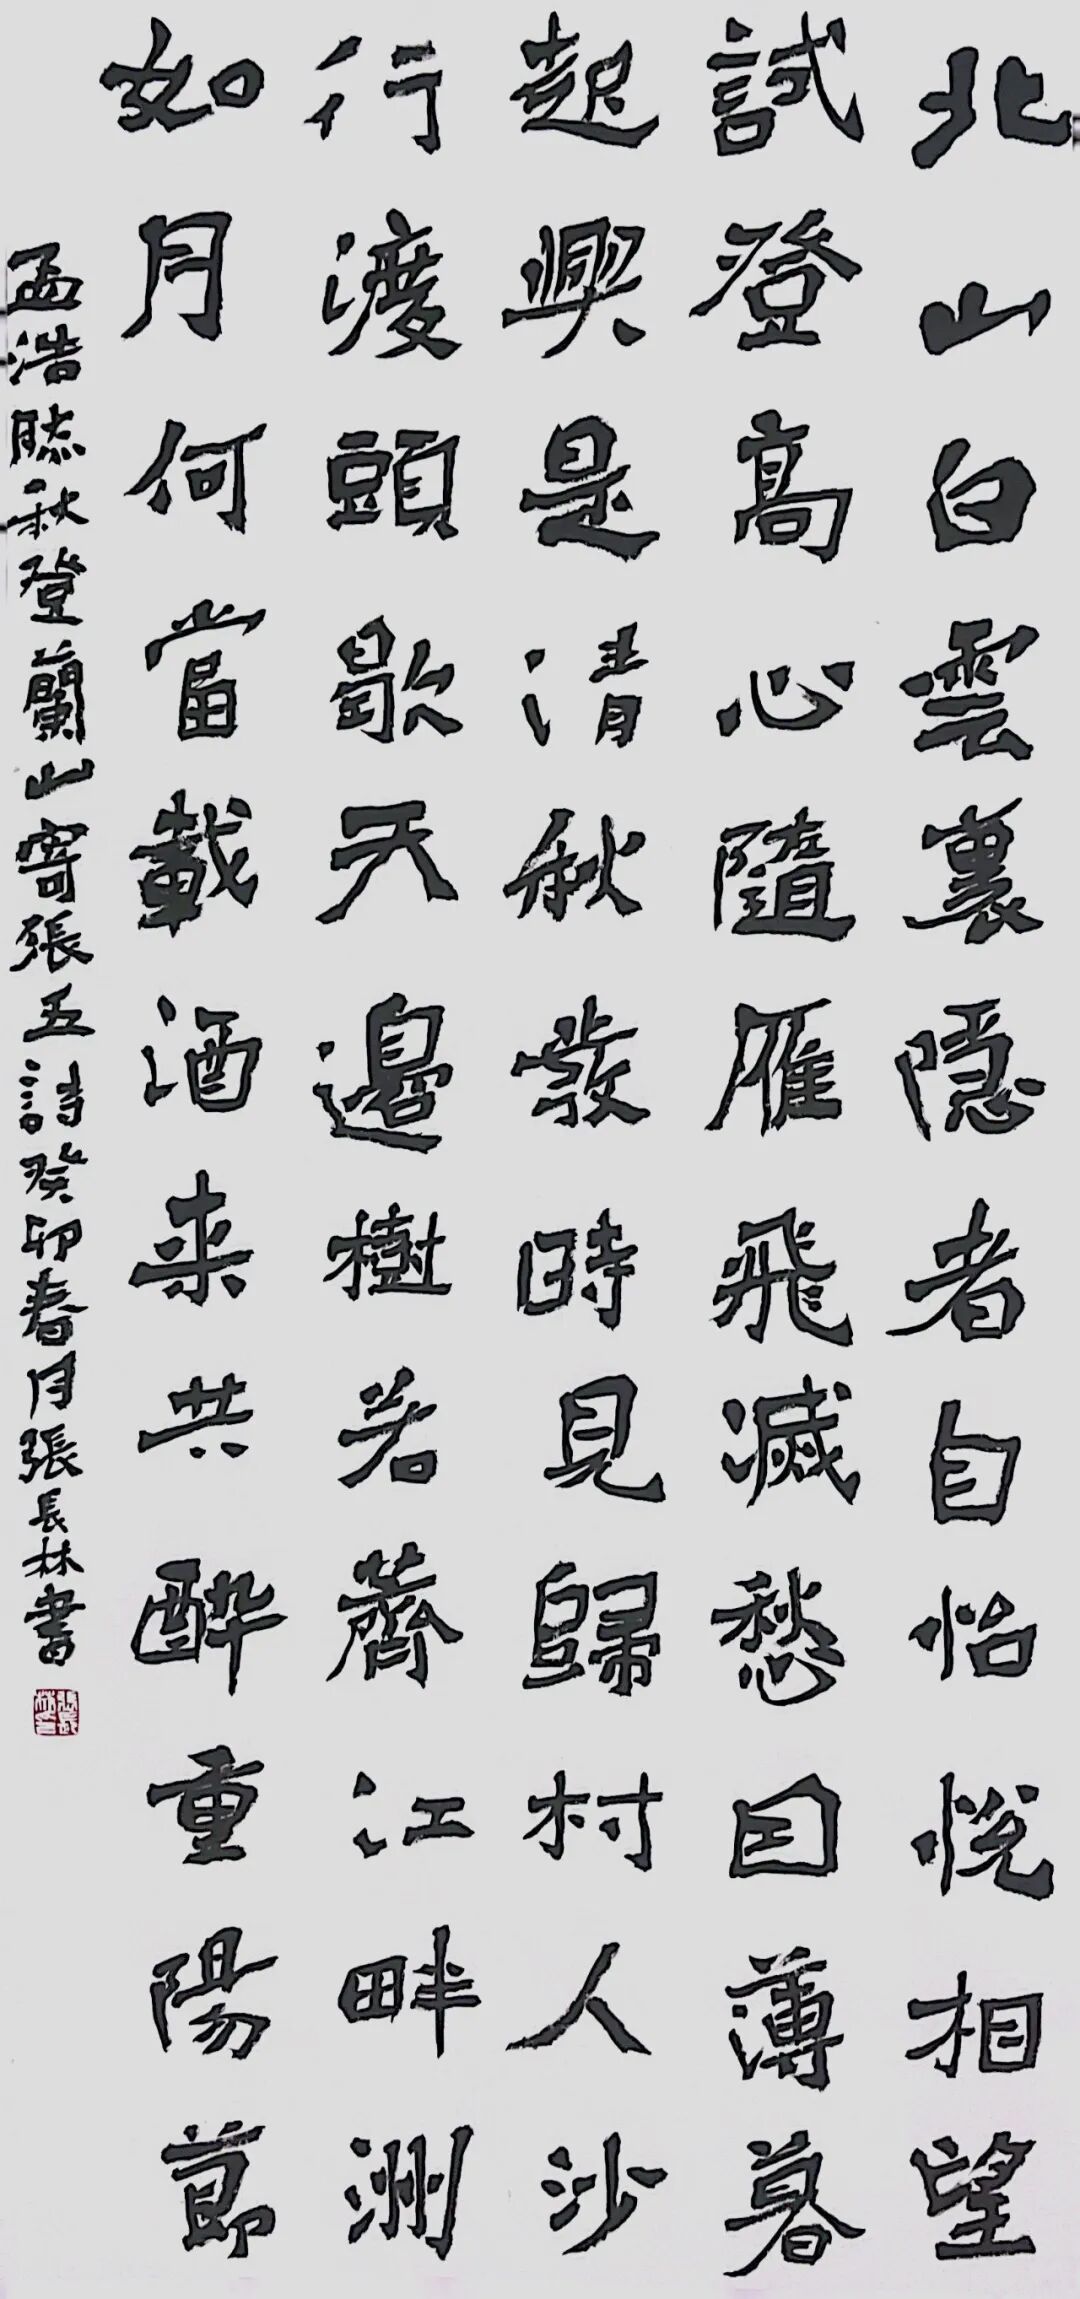 北山白雲裏隱者自怡悦相望
試登高心隨雁飛滅愁因薄暮
起興是清秋發時見歸村人沙
行渡頭歇天邊樹若薺江畔洲
如月何當載酒来共醉重陽節
孟浩然秋登蘭山寄張五詩癸卯春月張長林書